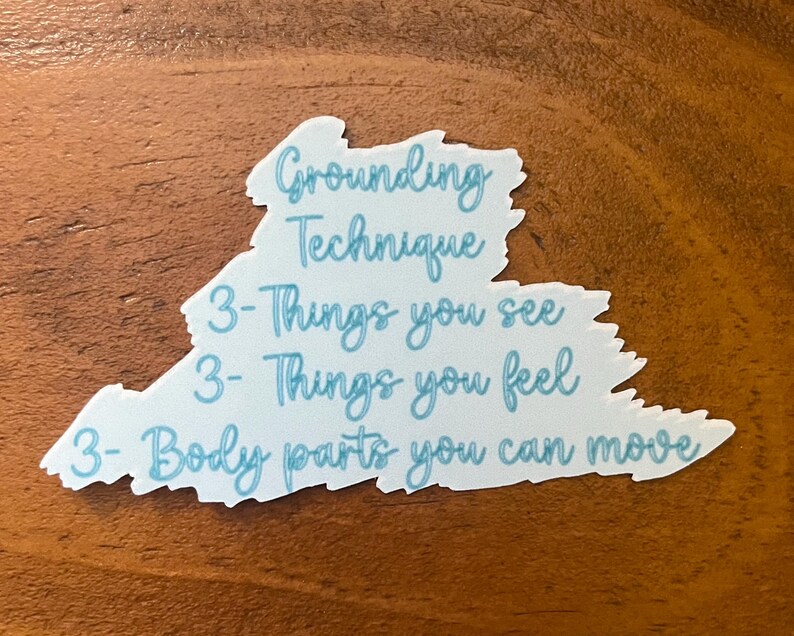 Grounding
Technique
3-Things you see
3- Things you feel
3- Body parts you can move